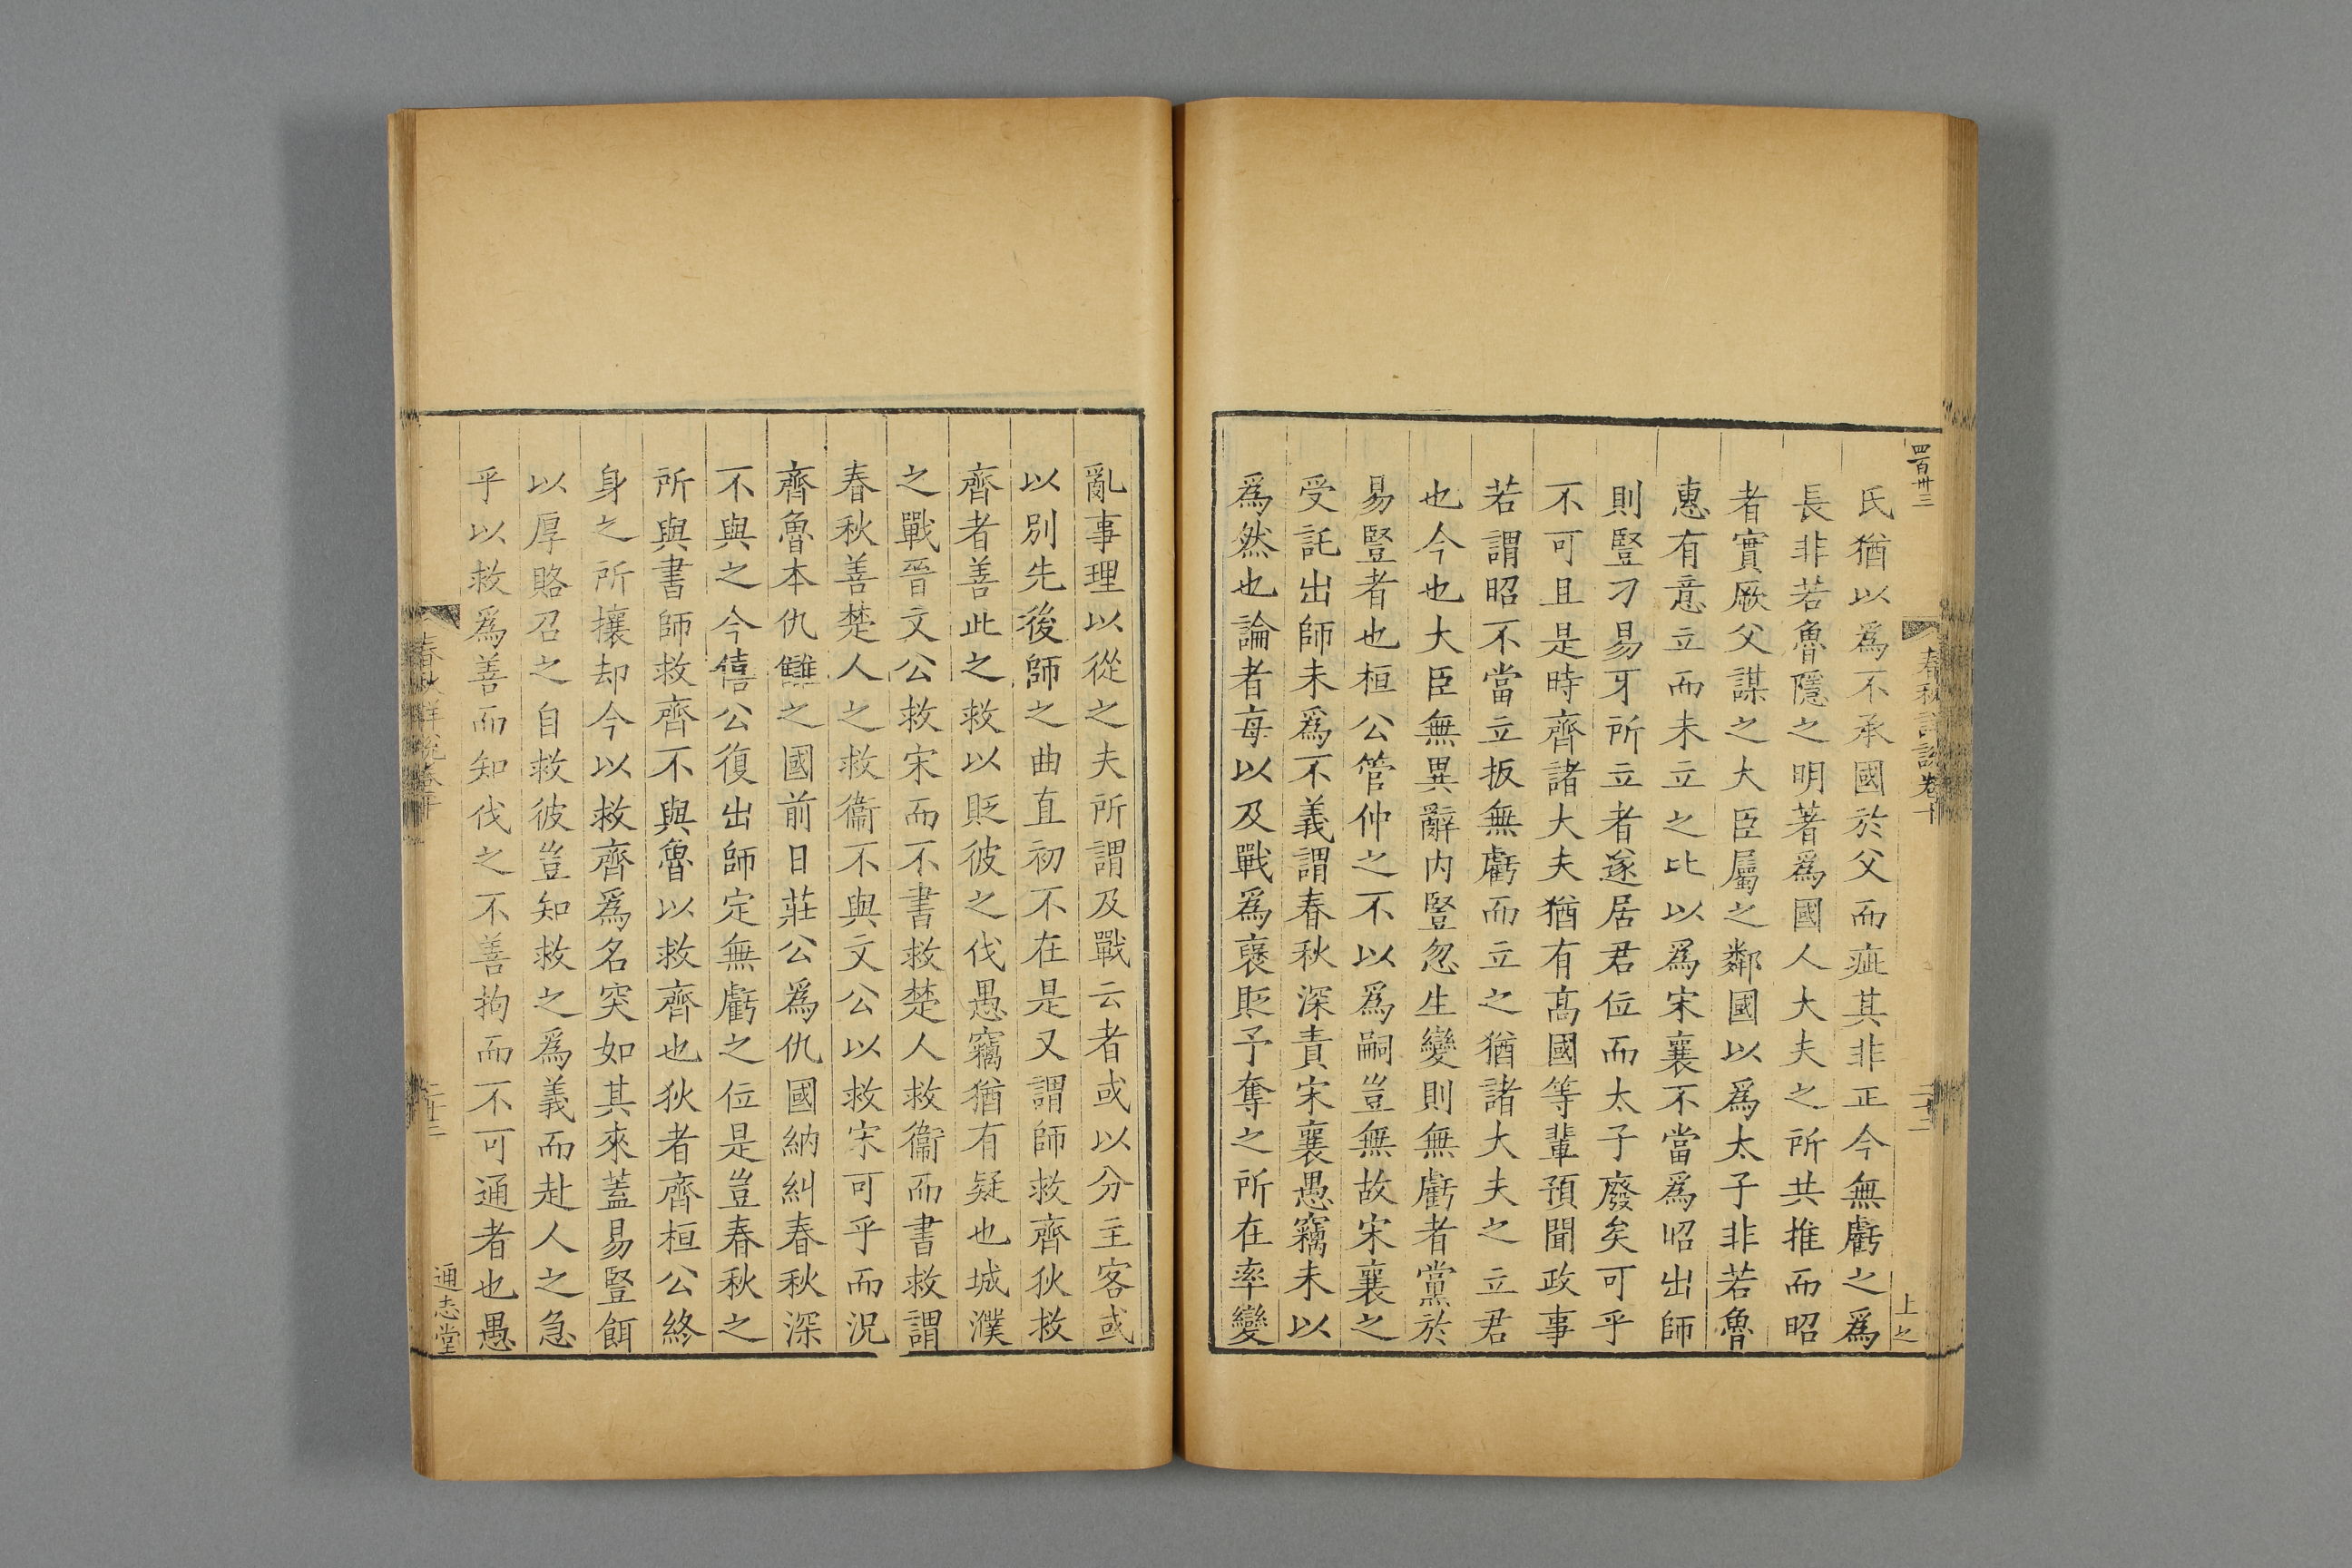 四百卅三
春秋詳說卷十
上之
氏猶以爲不承國於父而疵其非正今無虧之爲
長非若魯隱之明著爲國人大夫之所共推而昭
者實厥父謀之大臣屬之鄰國以爲太子非若魯
惠有意立而未立之比以爲宋襄不當爲昭出師
則豎刁易牙所立者遂居君位而太子廢矣可乎
不可且是時齊諸大夫猶有高國等輩預聞政事
若謂昭不當立扳無虧而立之猶諸大夫之立君
也今也大臣無異辭内豎忽生變則無虧者黨於
易豎者也桓公管仲之不以爲嗣豈無故宋襄之
受託出師未爲不義謂春秋深責宋襄愚竊未以
爲然也論者每以及戰爲褒貶予奪之所在率變
亂事理以從之夫所謂及戰云者或以分主客或
以別先後師之曲直初不在是又謂師救齊狄救
齊者善此之救以貶彼之伐愚竊猶有疑也城濮
之戰晉文公救宋而不書救楚人救衞而書救謂
春秋善楚人之救衞不與文公以救宋可乎而況
齊魯本仇讎之國前日莊公爲仇國納糾春秋深
不與之今僖公復出師定無虧之位是豈春秋之
所與書師救齊不與魯以救齊也狄者齊桓公終
身之所攘却今以救齊爲名突如其來蓋易豎餌
以厚賂召之自救彼豈知救之爲義而赴人之急
乎以救爲善而知伐之不善拘而不可通者也愚
通志堂